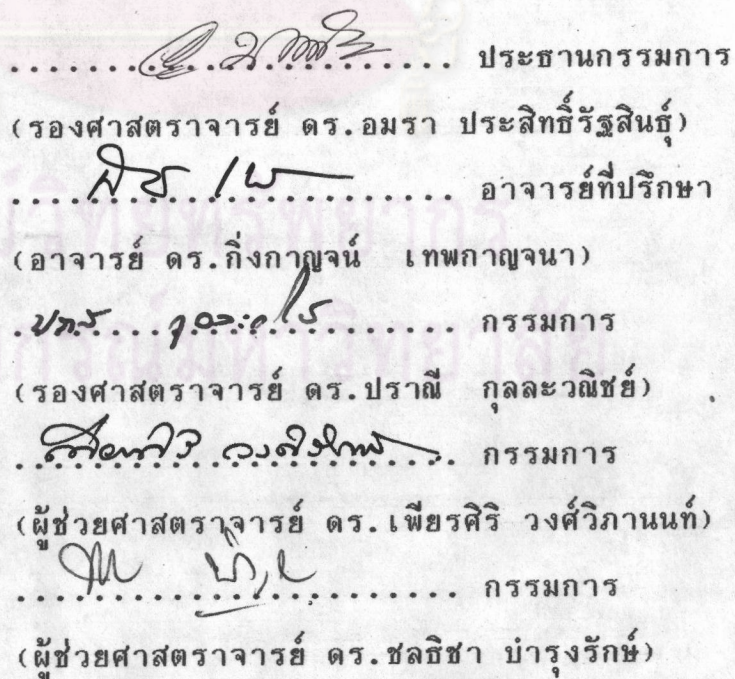 ประธานกรรมการ
(รองศาสตราจารย์ ดร.อมรา ประสิทธิ์รัฐสินธุ์)
อาจารย์ที่ปรึกษา
(อาจารย์ ดร.กิ่งกาญจน์ เทพกาญจนา)
กรรมการ
(รองศาสตราจารย์ ดร.ปราณี กุลละวณิชย์)
กรรมการ
(ผู้ช่วยศาสตราจารย์ ดร.เพียรศิริ วงศ์วิภานนท์)
กรรมการ
(ผู้ช่วยศาสตราจารย์ ดร.ชลธิชา บำรุงรักษ์)